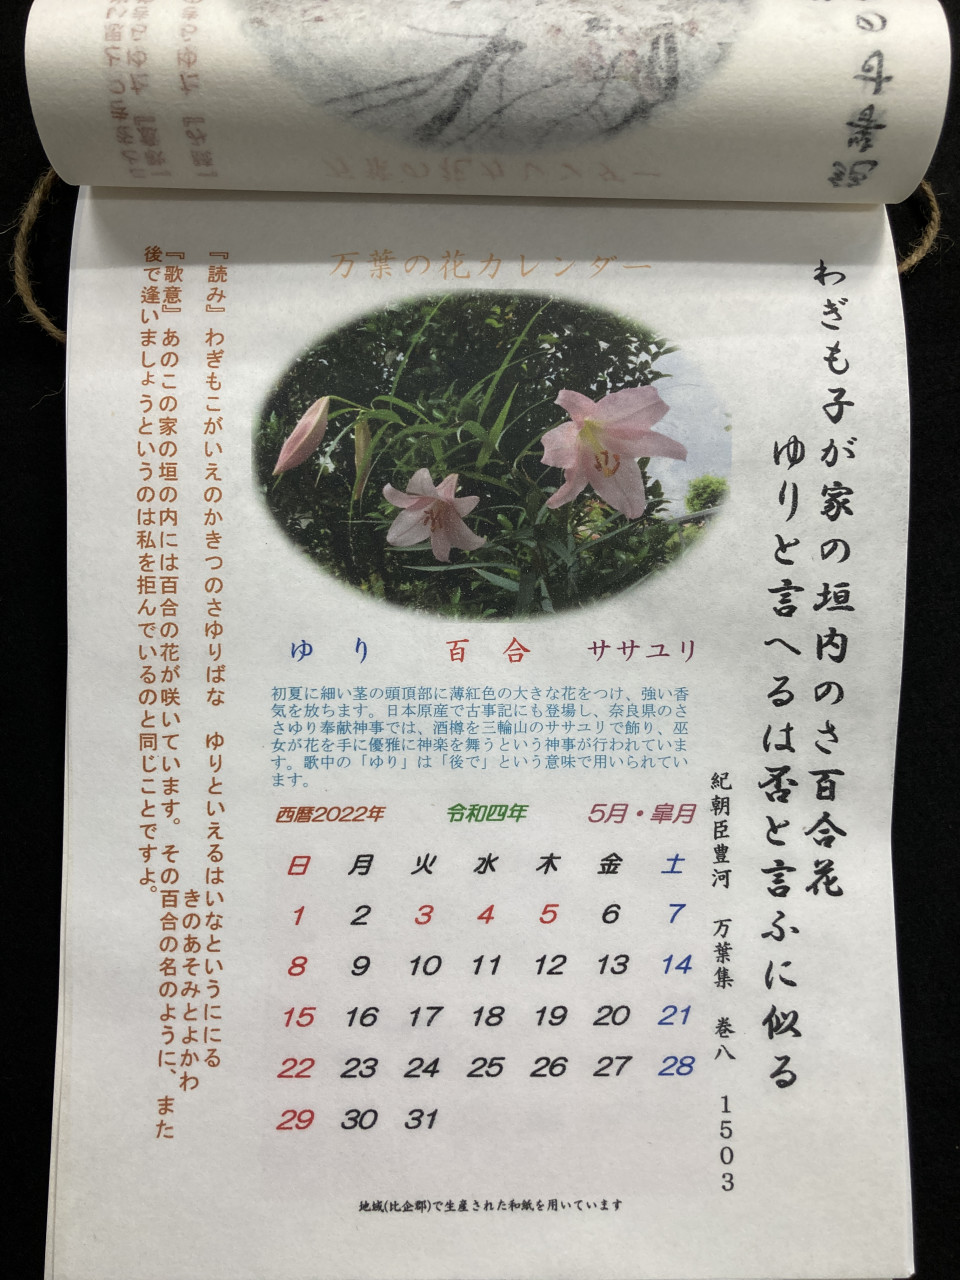 万葉の花カレンダー
わぎも子が家の垣内のさ百合花
ゆりと言へるは否と言ふに似る
紀朝臣豊河 万葉集 巻八 1503
ゆり 百合 ササユリ
初夏に細い茎の頭頂部に薄紅色の大きな花をつけ、強い香
気を放ちます。日本原産で古事記にも登場し、奈良県のさ
さゆり奉献神事では、酒樽を三輪山のササユリで飾り、巫
女が花を手に優雅に神楽を舞うという神事が行われていま
す。歌中の「ゆり」は「後で」という意味で用いられてい
ます。
西暦2022年 令和四年 5月・皐月
日 月 火 水 木 金 土
1 2 3 4 5 6 7
8 9 10 11 12 13 14
15 16 17 18 19 20 21
22 23 24 25 26 27 28
29 30 31
『読み』 わぎもこがいえのかきつのさゆりばな ゆりといえるはいなというににる
きのあそみとよかわ
『歌意』 あのこの家の垣の内には百合の花が咲いています。その百合の名のように、また
後で逢いましょうというのは私を拒んでいるのと同じことですよ。
地域(比企郡)で生産された和紙を用いています